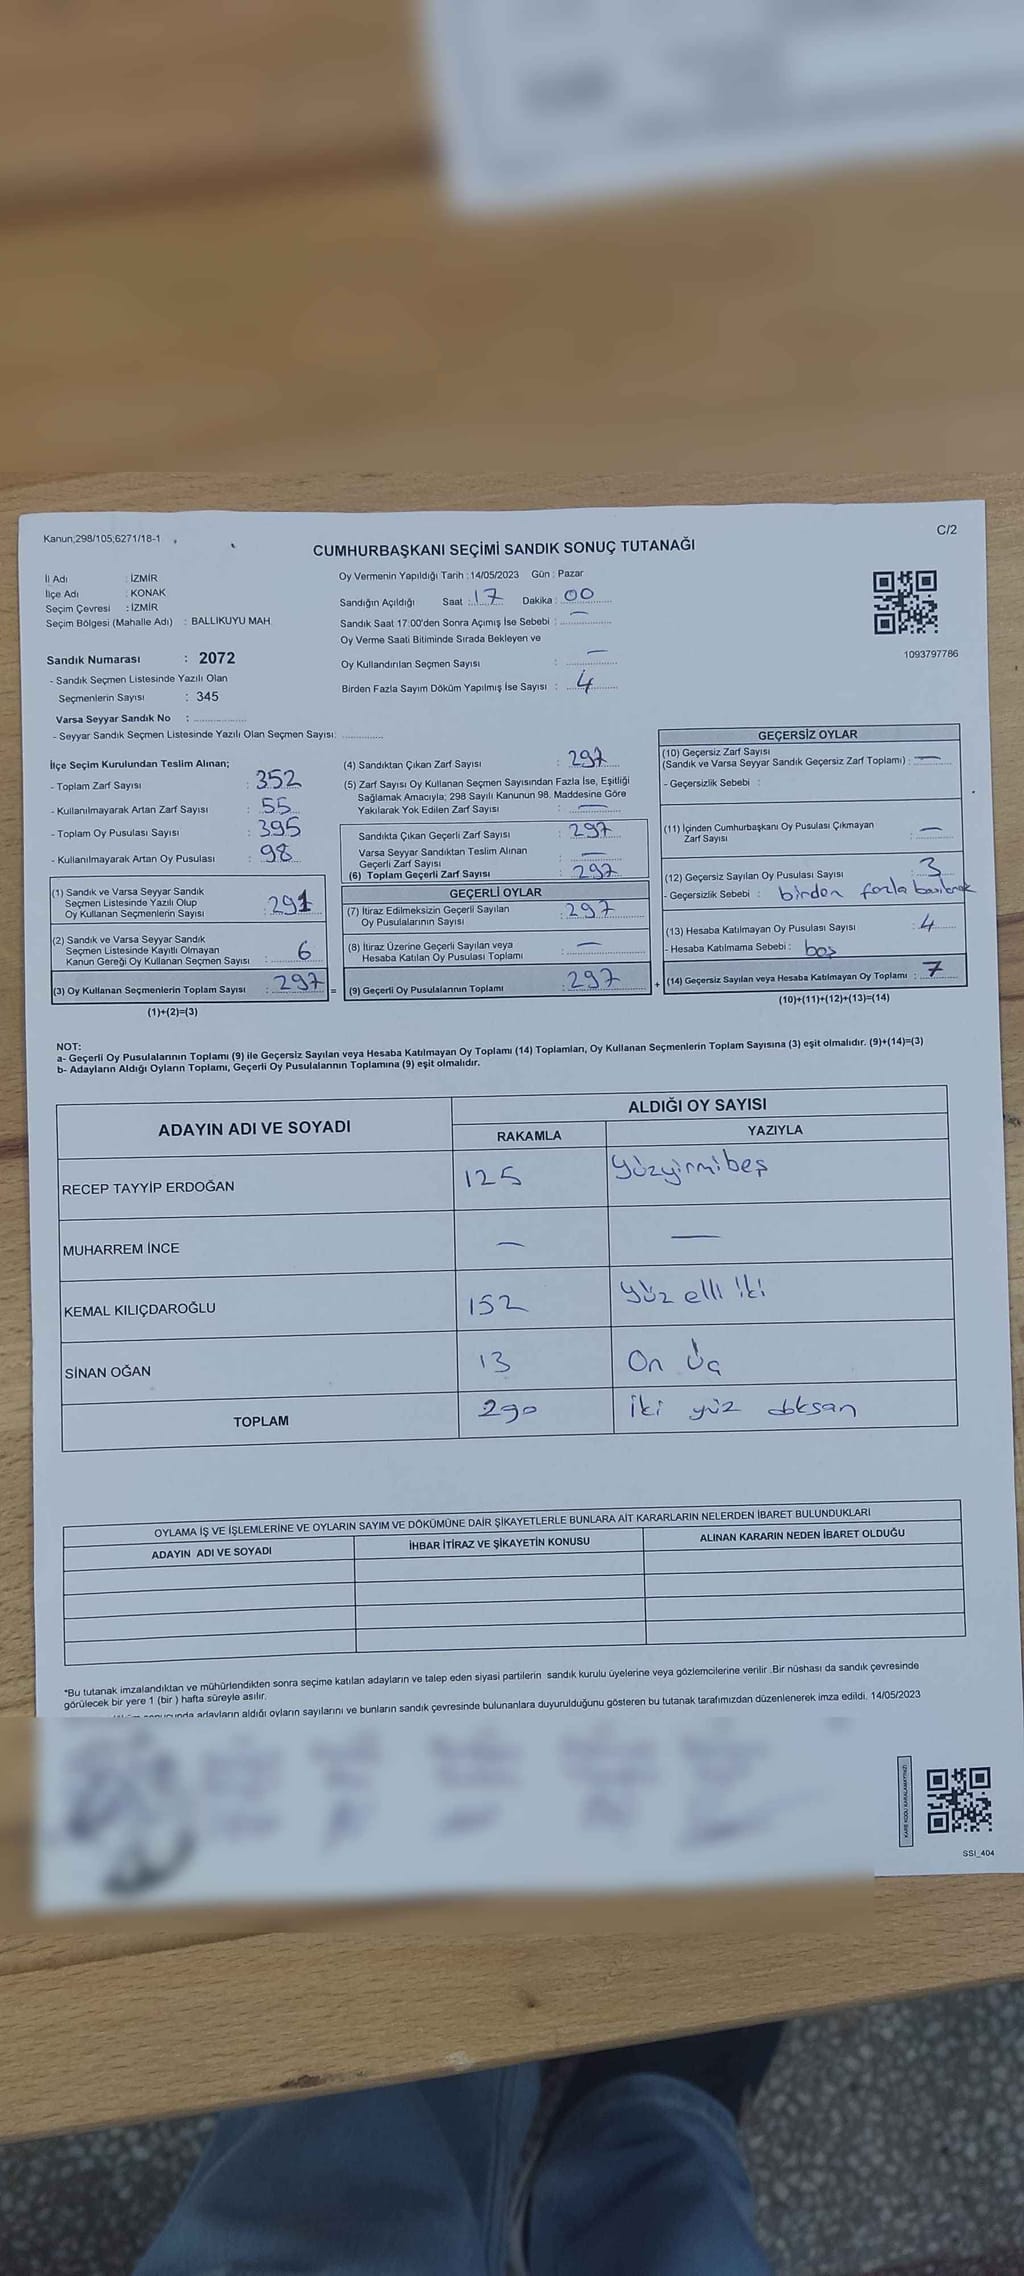 Kanun;298/105;6271/18-1
C/2
CUMHURBAŞKANI SEÇİMİ SANDIK SONUÇ TUTANAĞI
İl Adı : İZMİR
İlçe Adı : KONAK
Seçim Çevresi : İZMİR
Seçim Bölgesi (Mahalle Adı) : BALLIKUYU MAH.
Oy Vermenin Yapıldığı Tarih : 14/05/2023 Gün : Pazar
Sandığın Açıldığı Saat : 17 Dakika : 00
Sandık Saat 17:00'den Sonra Açımış İse Sebebi : —
Oy Verme Saati Bitiminde Sırada Bekleyen ve
Oy Kullandırılan Seçmen Sayısı : —
Birden Fazla Sayım Döküm Yapılmış İse Sayısı : 4
1093797786
Sandık Numarası : 2072
- Sandık Seçmen Listesinde Yazılı Olan
Seçmenlerin Sayısı : 345
Varsa Seyyar Sandık No :
- Seyyar Sandık Seçmen Listesinde Yazılı Olan Seçmen Sayısı:
İlçe Seçim Kurulundan Teslim Alınan;
- Toplam Zarf Sayısı : 352
- Kullanılmayarak Artan Zarf Sayısı : 55
- Toplam Oy Pusulası Sayısı : 395
- Kullanılmayarak Artan Oy Pusulası : 98
(1) Sandık ve Varsa Seyyar Sandık
Seçmen Listesinde Yazılı Olup
Oy Kullanan Seçmenlerin Sayısı : 291
(2) Sandık ve Varsa Seyyar Sandık
Seçmen Listesinde Kayıtlı Olmayan
Kanun Gereği Oy Kullanan Seçmen Sayısı : 6
(3) Oy Kullanan Seçmenlerin Toplam Sayısı : 297 =
(1)+(2)=(3)
(4) Sandıktan Çıkan Zarf Sayısı : 297
(5) Zarf Sayısı Oy Kullanan Seçmen Sayısından Fazla İse, Eşitliği
Sağlamak Amacıyla; 298 Sayılı Kanunun 98. Maddesine Göre
Yakılarak Yok Edilen Zarf Sayısı : —
Sandıkta Çıkan Geçerli Zarf Sayısı : 297
Varsa Seyyar Sandıktan Teslim Alınan
Geçerli Zarf Sayısı : —
(6) Toplam Geçerli Zarf Sayısı : 297
GEÇERLİ OYLAR
(7) İtiraz Edilmeksizin Geçerli Sayılan
Oy Pusulalarının Sayısı : 297
(8) İtiraz Üzerine Geçerli Sayılan veya
Hesaba Katılan Oy Pusulası Toplamı : —
(9) Geçerli Oy Pusulalarının Toplamı : 297 +
GEÇERSİZ OYLAR
(10) Geçersiz Zarf Sayısı
(Sandık ve Varsa Seyyar Sandık Geçersiz Zarf Toplamı) : —
- Geçersizlik Sebebi :
(11) İçinden Cumhurbaşkanı Oy Pusulası Çıkmayan
Zarf Sayısı : —
(12) Geçersiz Sayılan Oy Pusulası Sayısı : 3
- Geçersizlik Sebebi : birden fazla basılarak
(13) Hesaba Katılmayan Oy Pusulası Sayısı : 4
- Hesaba Katılmama Sebebi : boş
(14) Geçersiz Sayılan veya Hesaba Katılmayan Oy Toplamı : 7
(10)+(11)+(12)+(13)=(14)
NOT:
a- Geçerli Oy Pusulalarının Toplamı (9) ile Geçersiz Sayılan veya Hesaba Katılmayan Oy Toplamı (14) Toplamları, Oy Kullanan Seçmenlerin Toplam Sayısına (3) eşit olmalıdır. (9)+(14)=(3)
b- Adayların Aldığı Oyların Toplamı, Geçerli Oy Pusulalarının Toplamına (9) eşit olmalıdır.
ADAYIN ADI VE SOYADI
ALDIĞI OY SAYISI
RAKAMLA YAZIYLA
RECEP TAYYİP ERDOĞAN 125 yüzyirmibeş
MUHARREM İNCE — —
KEMAL KILIÇDAROĞLU 152 yüz elli iki
SİNAN OĞAN 13 On üç
TOPLAM 290 iki yüz doksan
OYLAMA İŞ VE İŞLEMLERİNE VE OYLARIN SAYIM VE DÖKÜMÜNE DAİR ŞİKAYETLERLE BUNLARA AİT KARARLARIN NELERDEN İBARET BULUNDUKLARI
ADAYIN ADI VE SOYADI İHBAR İTİRAZ VE ŞİKAYETİN KONUSU ALINAN KARARIN NEDEN İBARET OLDUĞU
*Bu tutanak imzalandıktan ve mühürlendikten sonra seçime katılan adayların ve talep eden siyasi partilerin sandık kurulu üyelerine veya gözlemcilerine verilir .Bir nüshası da sandık çevresinde
görülecek bir yere 1 (bir ) hafta süreyle asılır.
adayların aldığı oyların sayılarını ve bunların sandık çevresinde bulunanlara duyurulduğunu gösteren bu tutanak tarafımızdan düzenlenerek imza edildi. 14/05/2023
KARE KODU KARALAMAYINIZ!
SSI_404